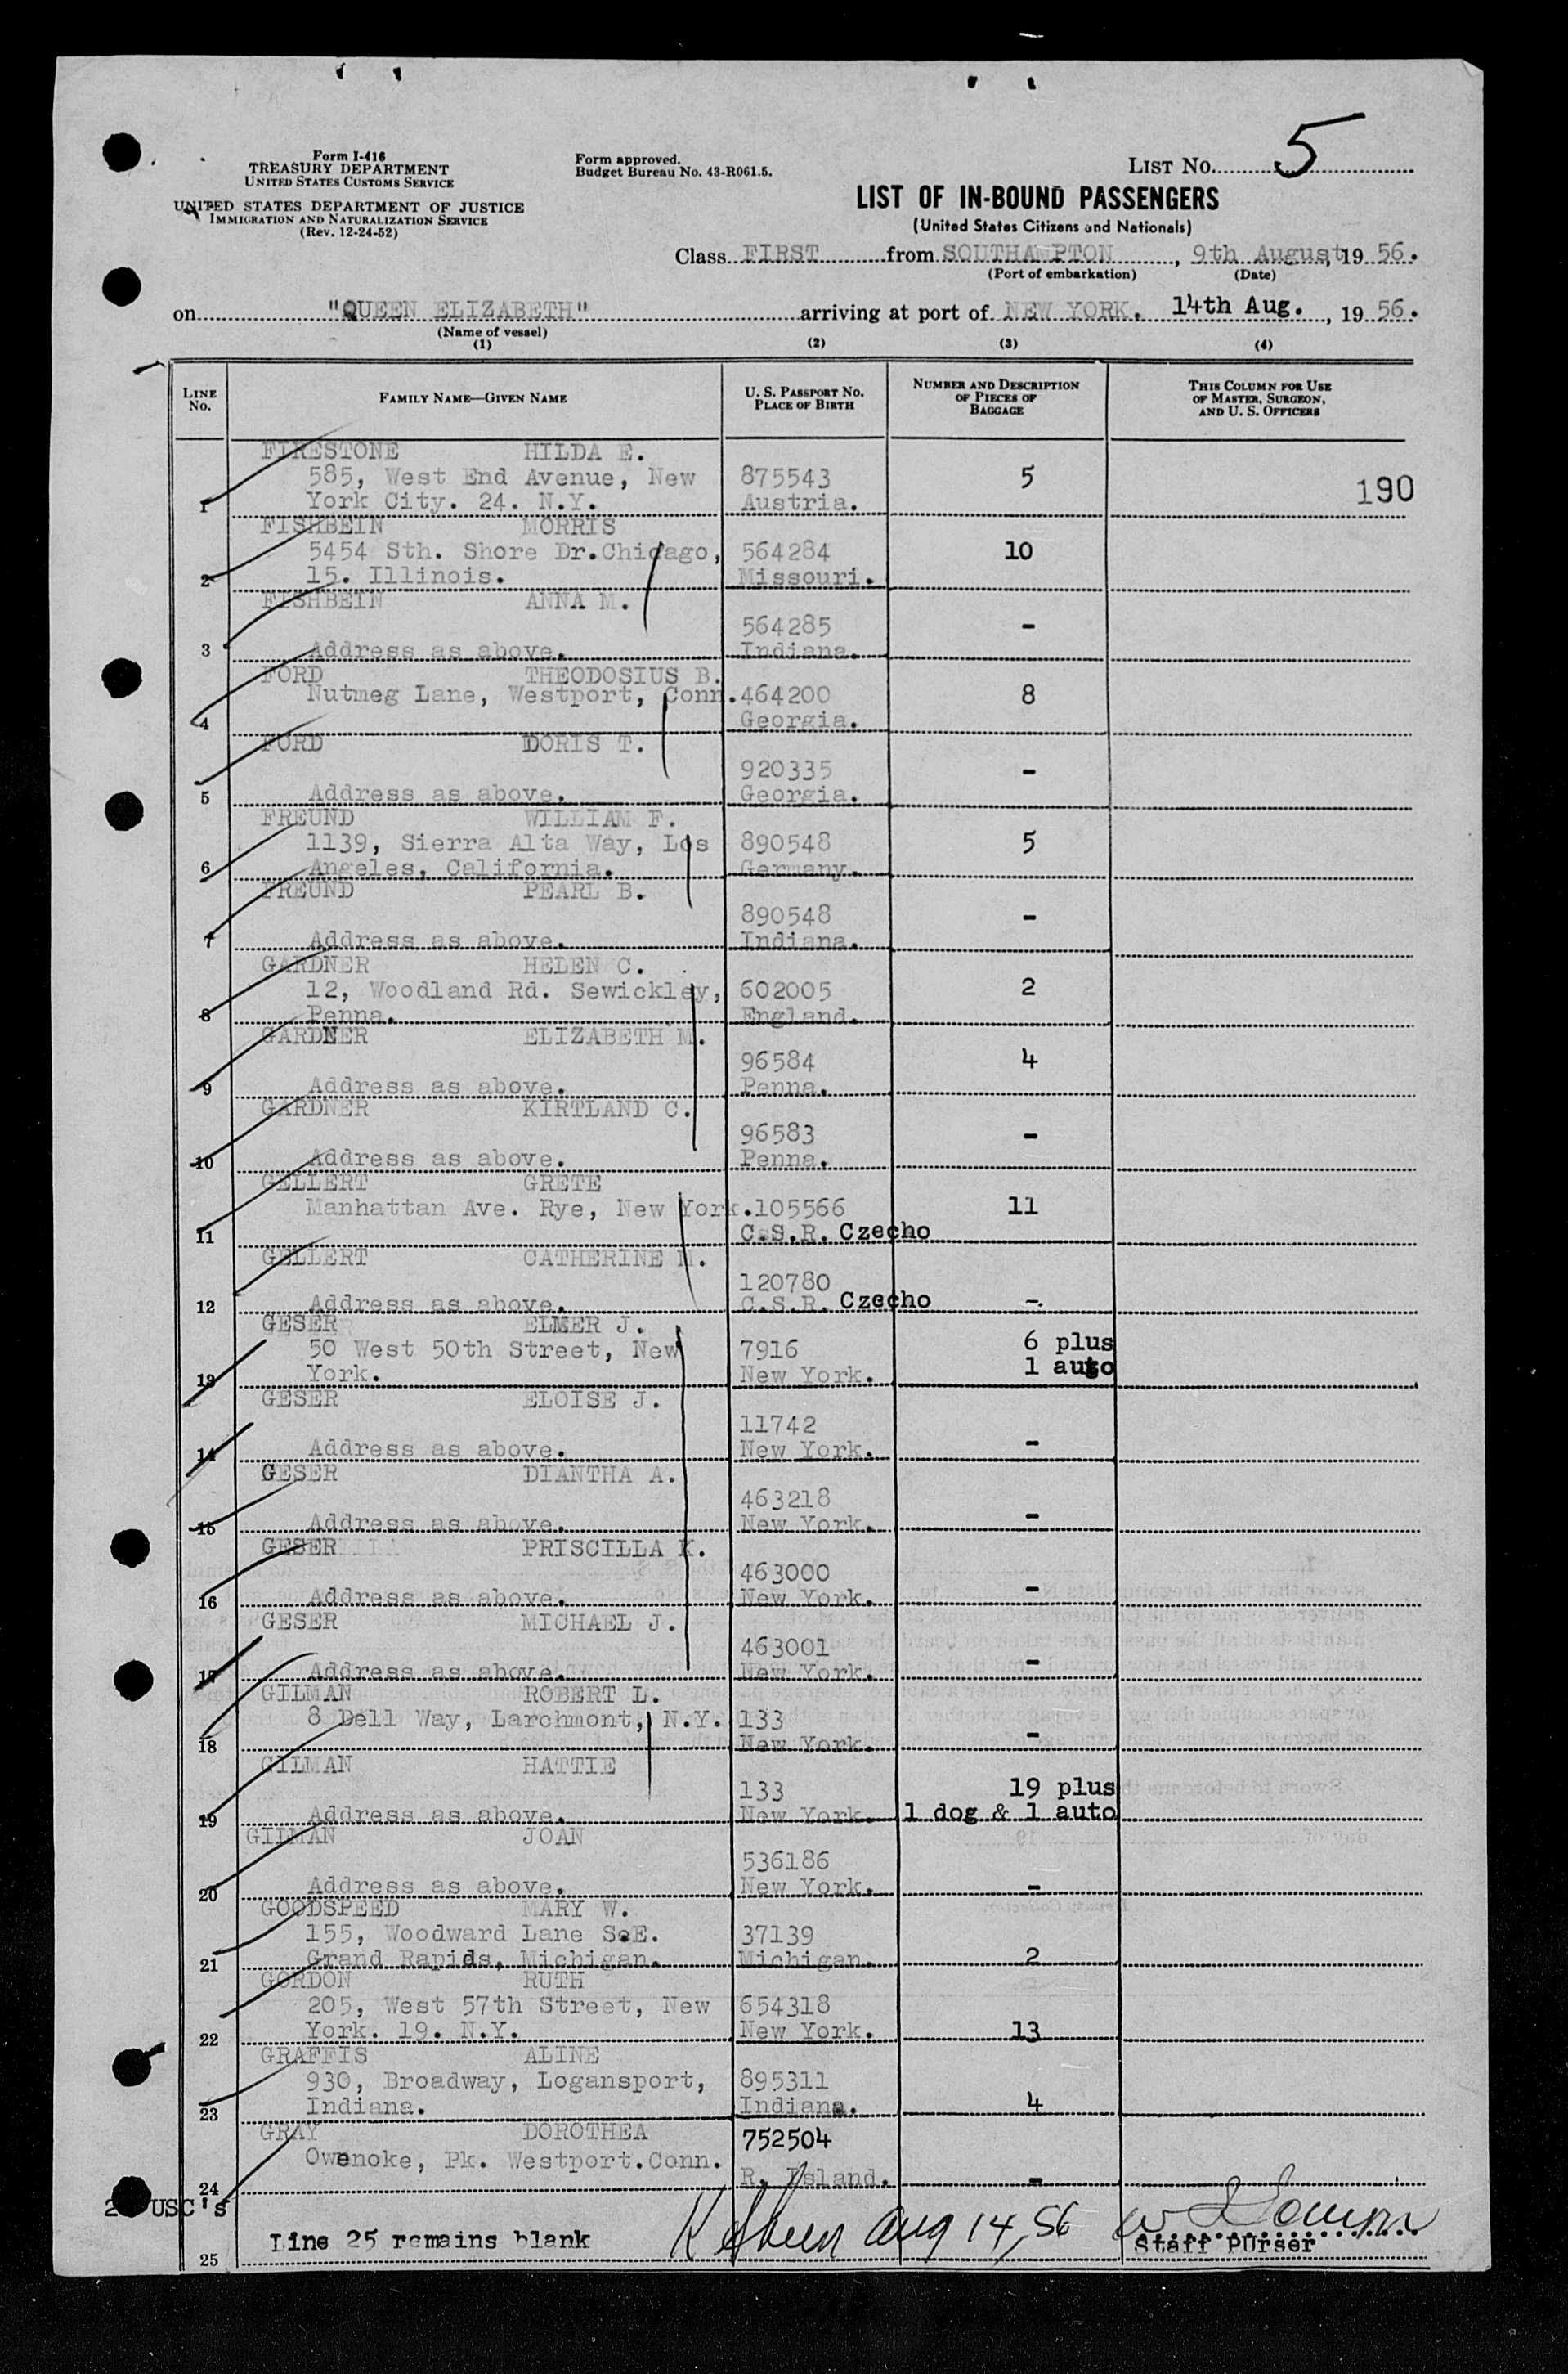 Form I-416
TREASURY DEPARTMENT
UNITED STATES CUSTOMS SERVICE
UNITED STATES DEPARTMENT OF JUSTICE
IMMIGRATION AND NATURALIZATION SERVICE
(Rev. 12-24-52)
Form approved.
Budget Bureau No. 43-R061.5.
LIST No. 5
LIST OF IN-BOUND PASSENGERS
(United States Citizens and Nationals)
Class FIRST from SOUTHAMPTON, 9th August, 19 56.
(Port of embarkation) (Date)
on "QUEEN ELIZABETH" arriving at port of NEW YORK. 14th Aug., 19 56.
(Name of vessel)
(1) (2) (3) (4)
LINE No. FAMILY NAME—GIVEN NAME U. S. PASSPORT No. PLACE OF BIRTH NUMBER AND DESCRIPTION OF PIECES OF BAGGAGE THIS COLUMN FOR USE OF MASTER, SURGEON, AND U. S. OFFICERS
FIRESTONE HILDA E.
585, West End Avenue, New 875543 5 190
1 York City. 24. N.Y. Austria.
FISHBEIN MORRIS
5454 Sth. Shore Dr.Chicago, 564284 10
2 15. Illinois. Missouri.
FISHBEIN ANNA M.
564285 -
3 Address as above. Indiana.
FORD THEODOSIUS B.
Nutmeg Lane, Westport, Conn. 464200 8
4 Georgia.
FORD DORIS T.
920335 -
5 Address as above. Georgia.
FREUND WILLIAM F.
1139, Sierra Alta Way, Los 890548 5
6 Angeles, California. Germany.
FREUND PEARL B.
890548 -
7 Address as above. Indiana.
GARDNER HELEN C.
12, Woodland Rd. Sewickley, 602005 2
8 Penna. England.
GARDNER ELIZABETH M.
96584 4
9 Address as above. Penna.
GARDNER KIRTLAND C.
96583 -
10 Address as above. Penna.
GELLERT GRETE
Manhattan Ave. Rye, New York. 105566 11
11 C.S.R. Czecho
GELLERT CATHERINE H.
120780
12 Address as above. C.S.R. Czecho -.
GESER ELMER J.
50 West 50th Street, New 7916 6 plus
13 York. New York. 1 auto
GESER ELOISE J.
11742
14 Address as above. New York. -
GESER DIANTHA A.
463218
15 Address as above. New York. -
GESER PRISCILLA K.
463000
16 Address as above. New York. -
GESER MICHAEL J.
463001
17 Address as above. New York. -
GILMAN ROBERT L.
8 Dell Way, Larchmont, N.Y. 133
18 New York. -
GILMAN HATTIE
133 19 plus
19 Address as above. New York. 1 dog & 1 auto
GILMAN JOAN
536186
20 Address as above. New York. -
GOODSPEED MARY W.
155, Woodward Lane S.E. 37139
21 Grand Rapids, Michigan. Michigan. 2
GORDON RUTH
205, West 57th Street, New 654318
22 York. 19. N.Y. New York. 13
GRAFFIS ALINE
930, Broadway, Logansport, 895311
23 Indiana. Indiana. 4
GRAY DOROTHEA 752504
Owenoke, Pk. Westport.Conn.
24 R. Island. -
USC's
Line 25 remains blank Aug 14, 56
25 Staff PUrser